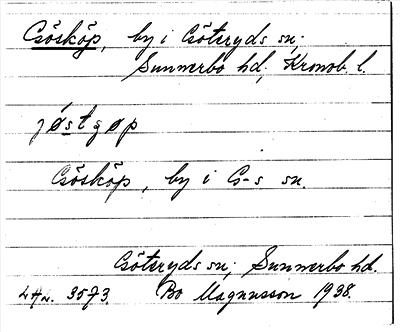 Csösköp, by i Csöteryds sn;
Sunnerbo hd, Kronob. l.
jøstgøp
Csösköp, by i G-s sn.
Csöteryds sn; Sunnerbo hd.
3573. Bo Magnusson 1938.